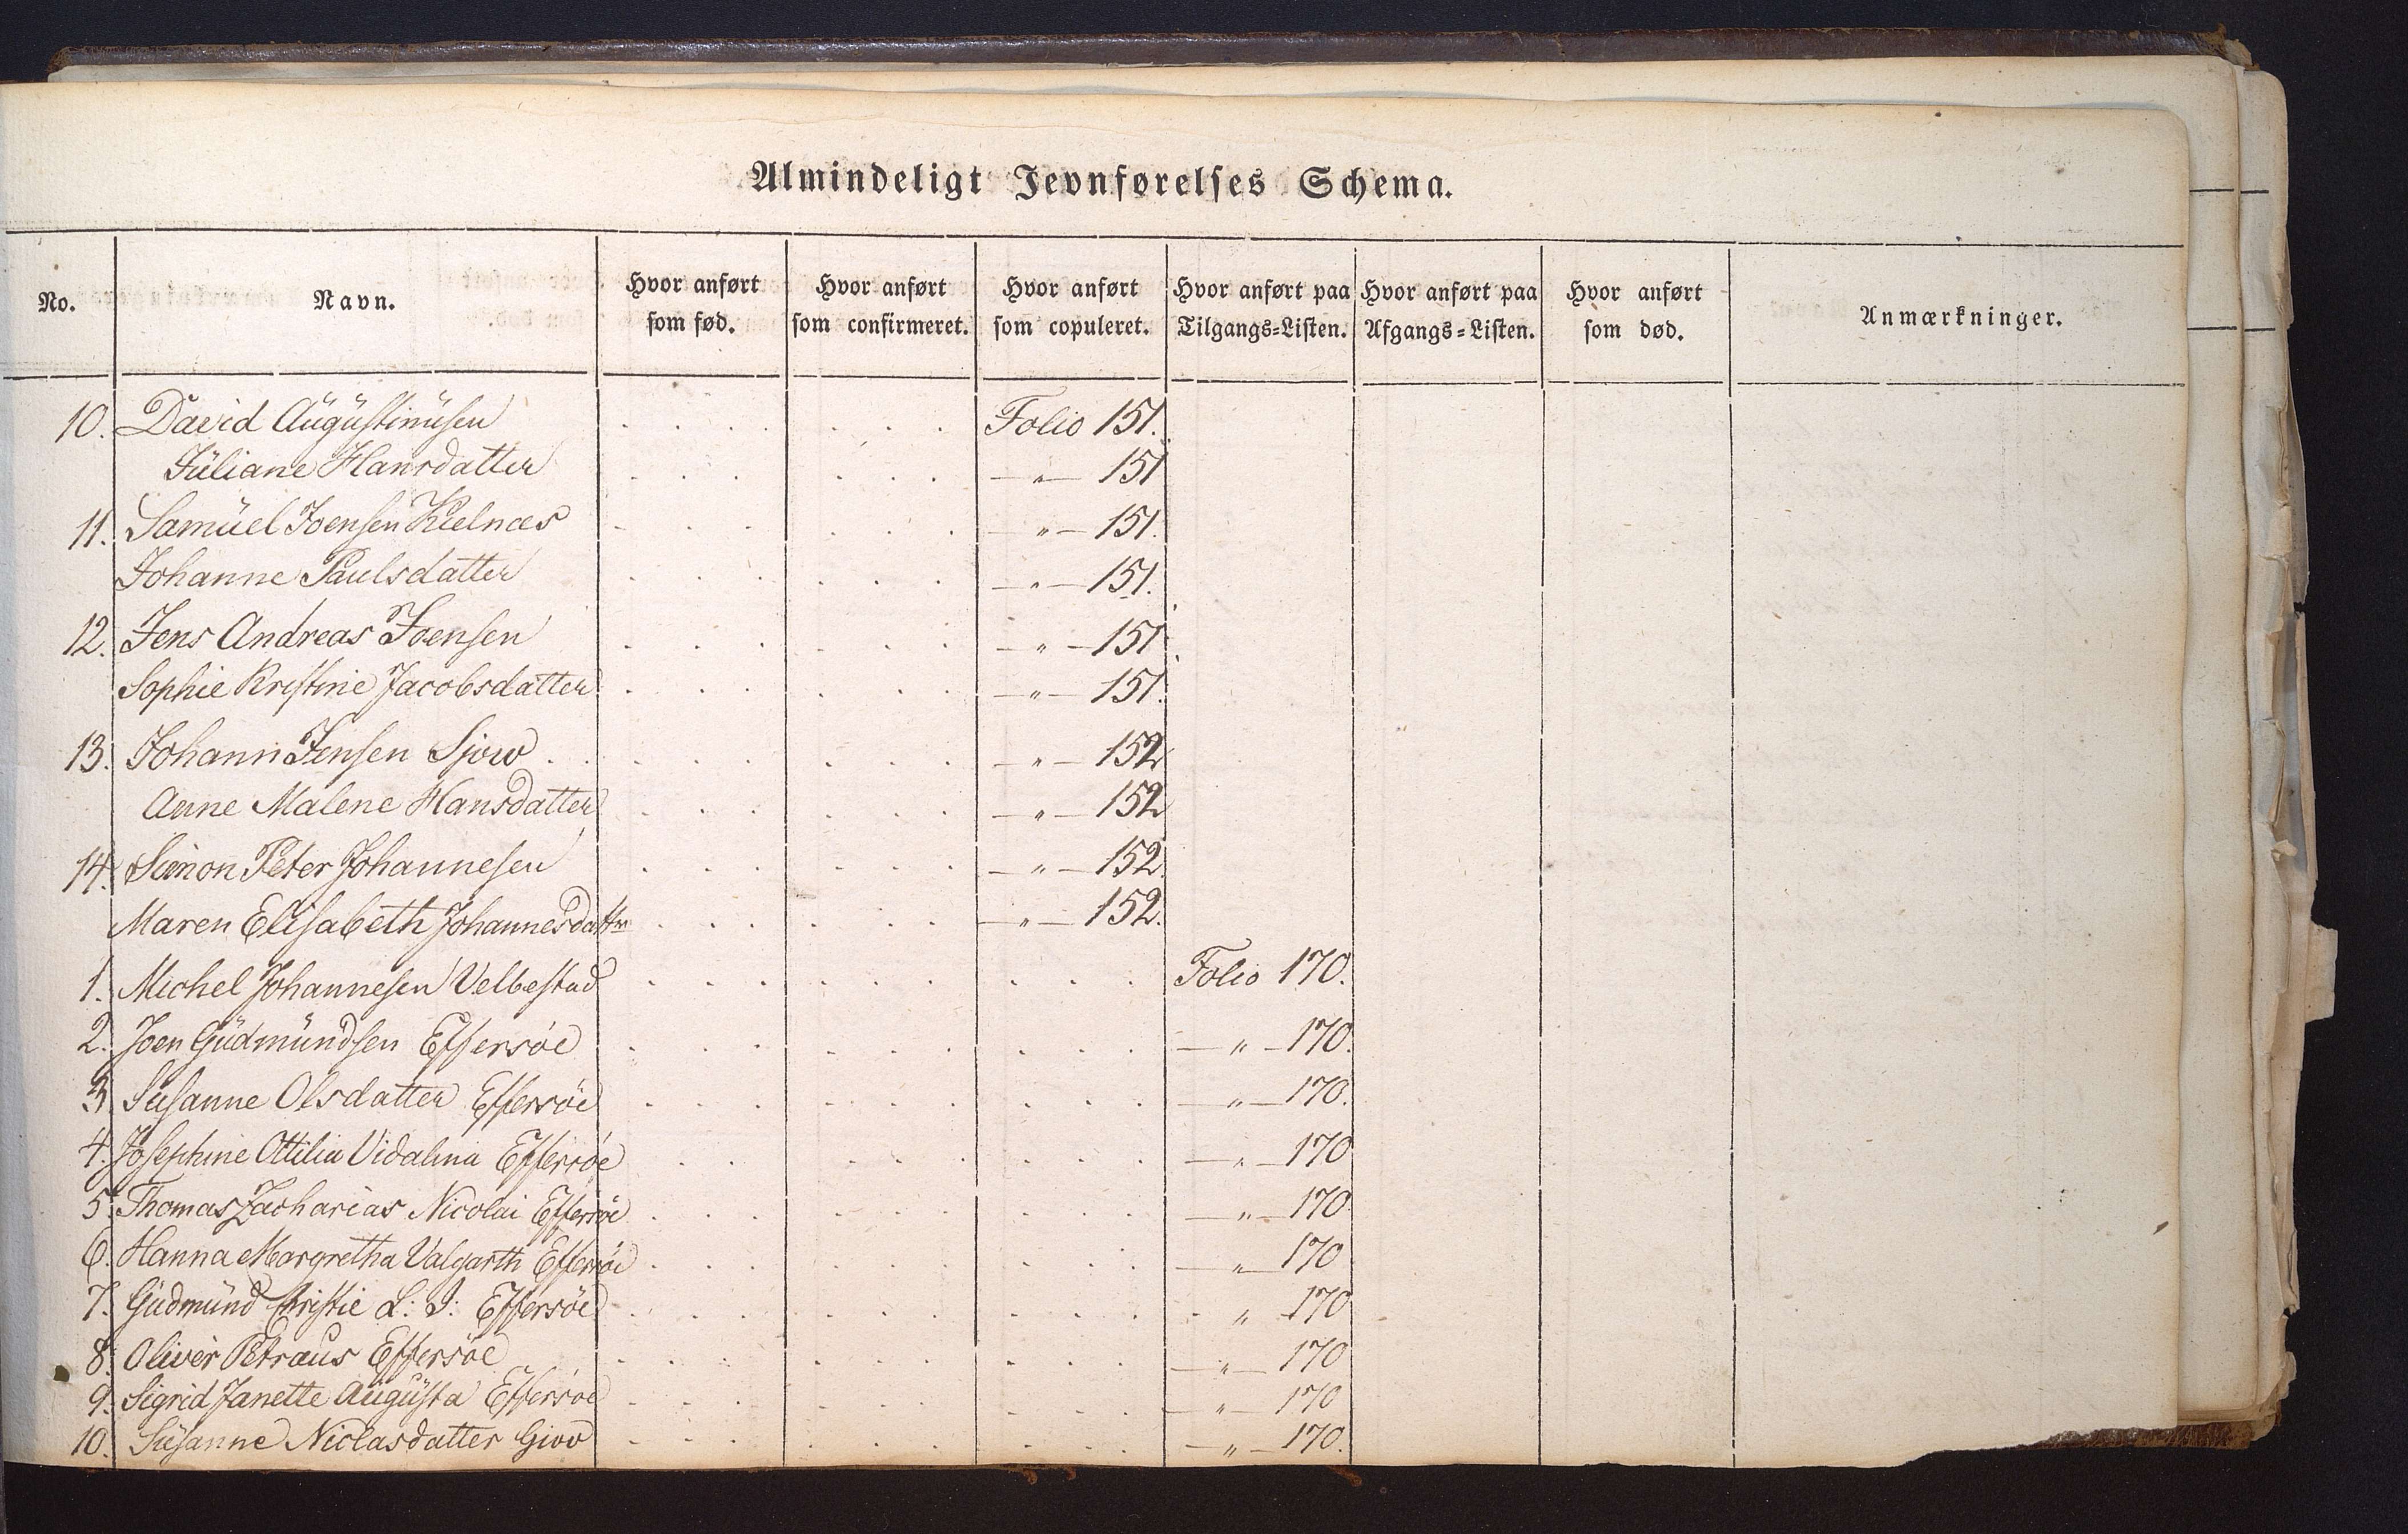 Almindeligt Jevnførelses Schema.
No. Navn. Hvor anført som fød. Hvor anført som confirmeret. Hvor anført som copuleret. Hvor anført paa Tilgangs-Listen. Hvor anført paa Afgangs-Listen. Hvor anført som død. Anmærkninger.
10. David Augustinusen . . . . . . . Folio 151.
Juliane Hansdatter . . . . . . —"— 151
11. Samuel Joensen Kielnæs . . . . . . —"— 151.
Johanne Paulsdatter . . . . . . —"— 151.
12. Jens Andreas Joensen . . . . . . —"— 151
Sophie Kristine Jacobsdatter . . . . . . —"— 151.
13. Johann Jensen Sjow . . . . . . . . —"— 152
Anne Malene Hansdatter . . . . . . —"— 152
14. Simon Peter Johannesen . . . . . . —"— 152.
Maren Elisabeth Johannesdattr . . . . . . —"— 152.
1. Michel Johannesen Velbestad . . . . . . . . . Folio 170.
2. Joen Gudmundsen Effersøe . . . . . . . . . —"— 170.
3. Susanne Olsdatter Effersøe . . . . . . . . . —"— 170.
4. Josephine Ottilia Vidalina Effersøe . . . . . . . . —"— 170
5. Thomas Zacharias Nicolai Effersøe . . . . . . . . . —"— 170
6. Hanna Margretha Valgarth Effersøe . . . . . . . . . —"— 170
7. Gudmund Christie L: I: Effersøe . . . . . . . . . - " - 170
8. Oliver Petræus Effersøe . . . . . . . . . —"— 170
9. Sigrid Janette Augusta Effersøe . . . . . . . . . —"— 170
10. Susanne Niclasdatter Giov . . . . . . . . . —"— 170.